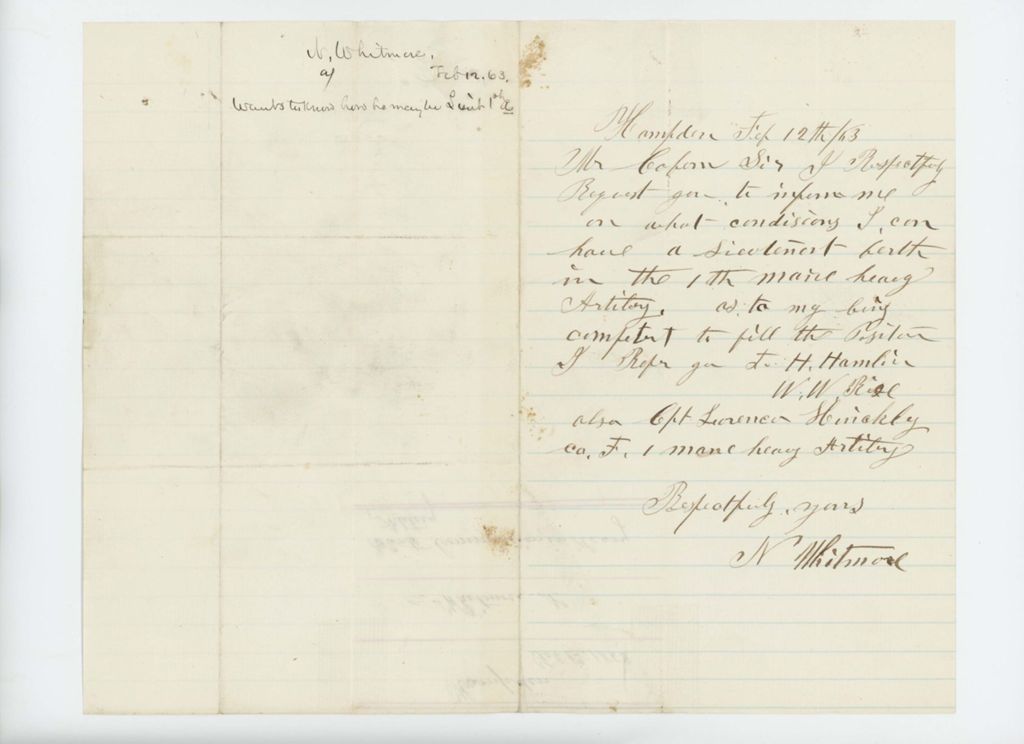 N. Whitmore,
Feb 12. 63.
Wants to know how he may be Lieut 1st
Hampden Feb 12th/63
Mr Coburn Sir I Respectfuly
Request you to inform me
on what condisions I can
have a Lieutenent berth
in the 1th maine heavy
Artilery. as to my being
competent to fill the Position
I Refer you to H. Hamlin
W. W. Rice
also Cpt Lorence Hinckley
co. F. 1 mane heavy Artilery
Respectfuly yours
N Whitmore